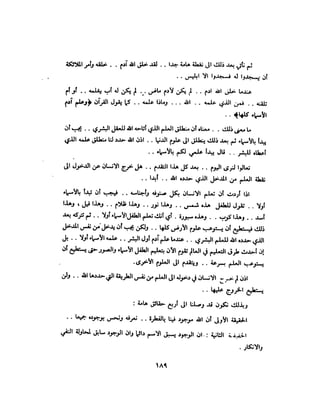 ثم نأتي بعد ذلك الى نقطة هامة جدا . . لقد خلق الله آدم . . خلقه وأمر الملائكة
أن يسجدوا له فسجدوا الا ابليس . .
عندما خلق الله آدم . . لم يكن لآدم ماض . . لم يكن له أب يعلمه . . أو أم
تلقنه . . فمن الذي علمه . . الله . . . وماذا علمه . . كما يقول القرآن ﴿وعلم آدم
الأسماء كلها﴾ . .
ما معنى ذلك . . معناه أن منطلق العلم الذي أتاحه الله للعقل البشري . . يجب أن
يبدأ بالأسماء ثم بعد ذلك ينطلق الى علوم الدنيا . . اذن الله حدد لنا منطلق علمه الذي
أعطاه للبشر . . قال يبدأ علمي لكم بالأسماء . .
تعالوا لنرى اليوم . . بعد كل هذا التقدم . . هل خرج الانسان عن الدخول الى
نقطة العلم من المدخل الذي حدده الله . . أبدا . .
اذا أردت أن تعلم الانسان بكل صنوفه وأجناسه . . فيجب أن تبدأ بالأسماء
أولا . . تقول للطفل هذه شمس . . وهذا نور . . وهذا ظلام . . وهذا فيل ، وهذا
أسد . . وهذا كوب . . وهذه سبورة . . أي أنك تعلم الطفل الأسماء أولا . . ثم تتركه بعد
ذلك فيستطيع أن يستوعب علوم الأرض كلها . . ولكن يجب أن يدخل من نفس المدخل
الذي حدده الله للعلم البشري . . عندما علم آدم أول البشر . . علمه الأسماء أولا . . بل
إن أحدث طرق التعليم في العالم تقوم الآن بتعليم الطفل الأسماء والصور حتى يستطيع أن
يستوعب العلم بسرعة . . ويتقدم الى العلوم الأخرى.
اذن لم يخرج الانسان في دخوله الى العلم من نفس الطريقة التي حددها الله . . ولن
يستطيع الخروج عليها . .
وبذلك نكون قد وصلنا الى أربع حقائق هامة :
الحقيقة الأولى أن الله موجود فينا بالفطرة . . نعرفه ونحس بوجوده جميعا . .
الحقيقة الثانية : ان الوجود يسبق الاسم دائما وان الوجود سابق لمحاولة النفي
والانكار .
١٨٩